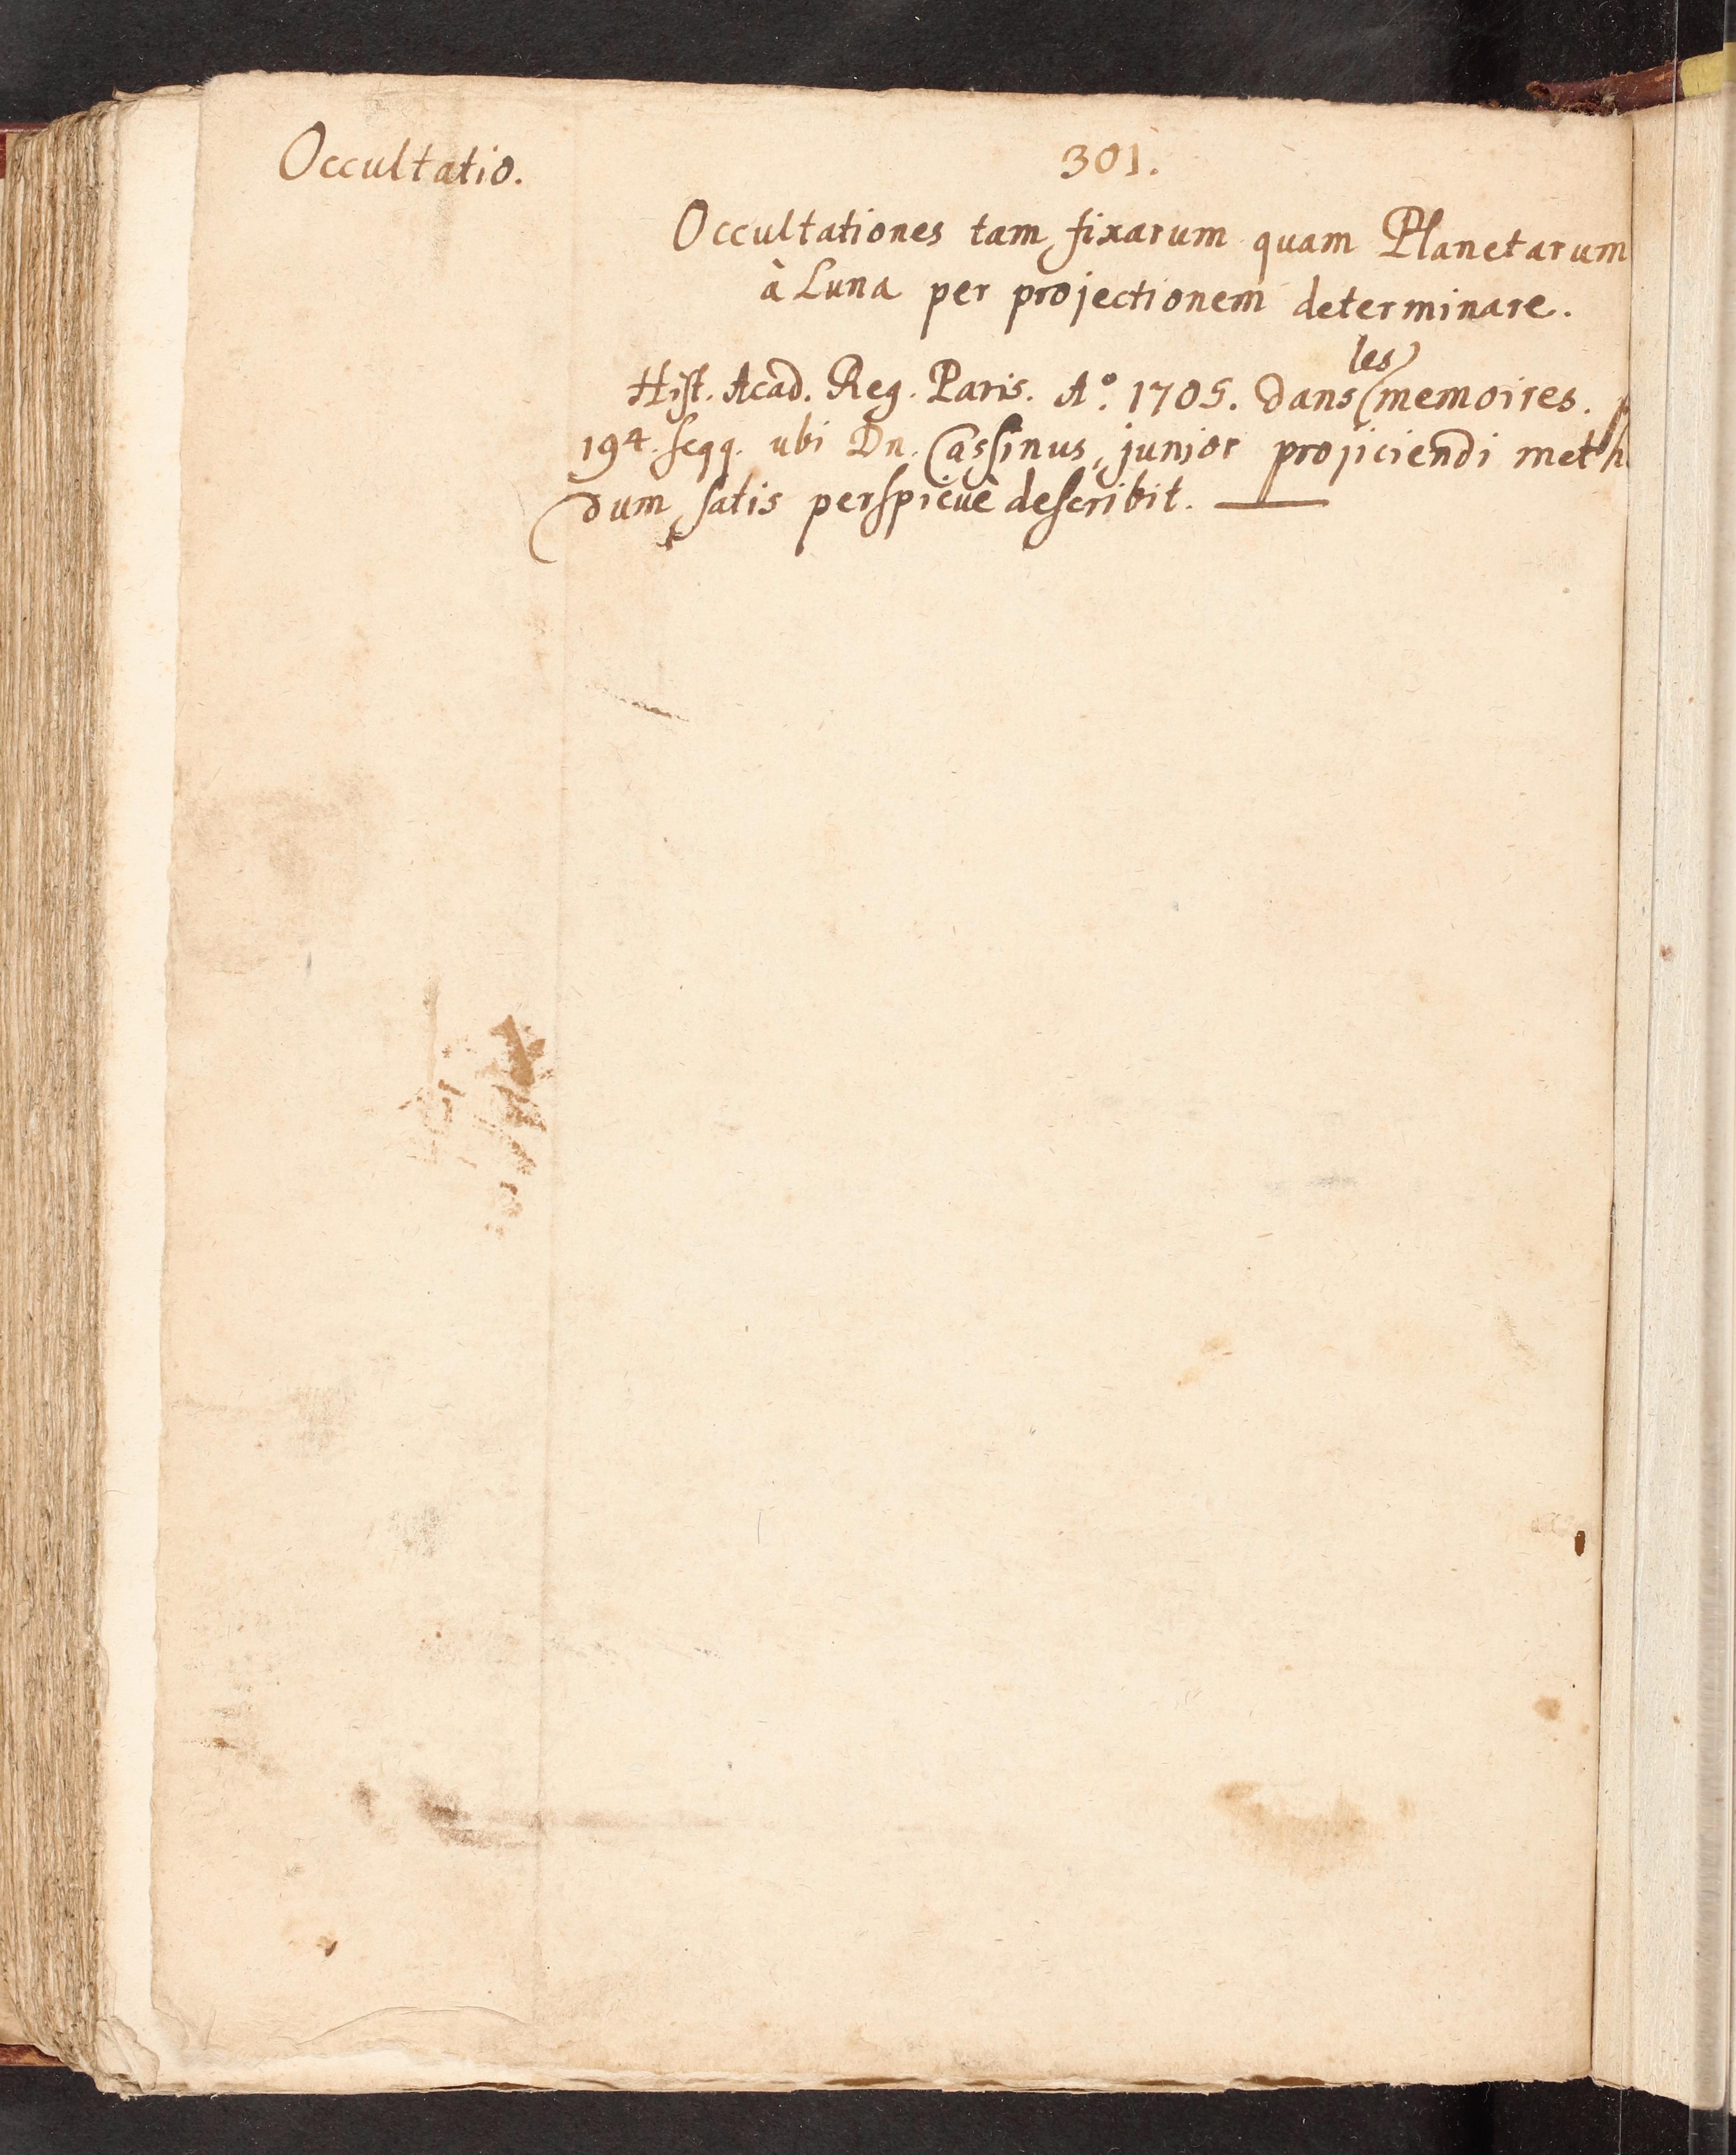 Occultatio.
301.
Occultationes tam fixarum quam Planetarum
à Luna per projectionem determinare.
les
Hist. Acad. Reg. Paris. A.º 1705. dans memoires.
194. seqq. ubi Dn. Cassinus, junior projiciendi meth
dum satis perspicuè describit. —